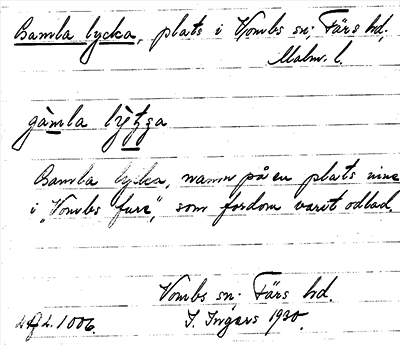 Gamla lycka, plats i Vombs sn; Färs hd,
Malm. l.
gàmla lỳtga
Gamla lycka, namn på en plats inne
i „Vombs fure”, som fordom varit odlad.
Vombs sn. Färs hd.
I. Ingers 1930.
1006.